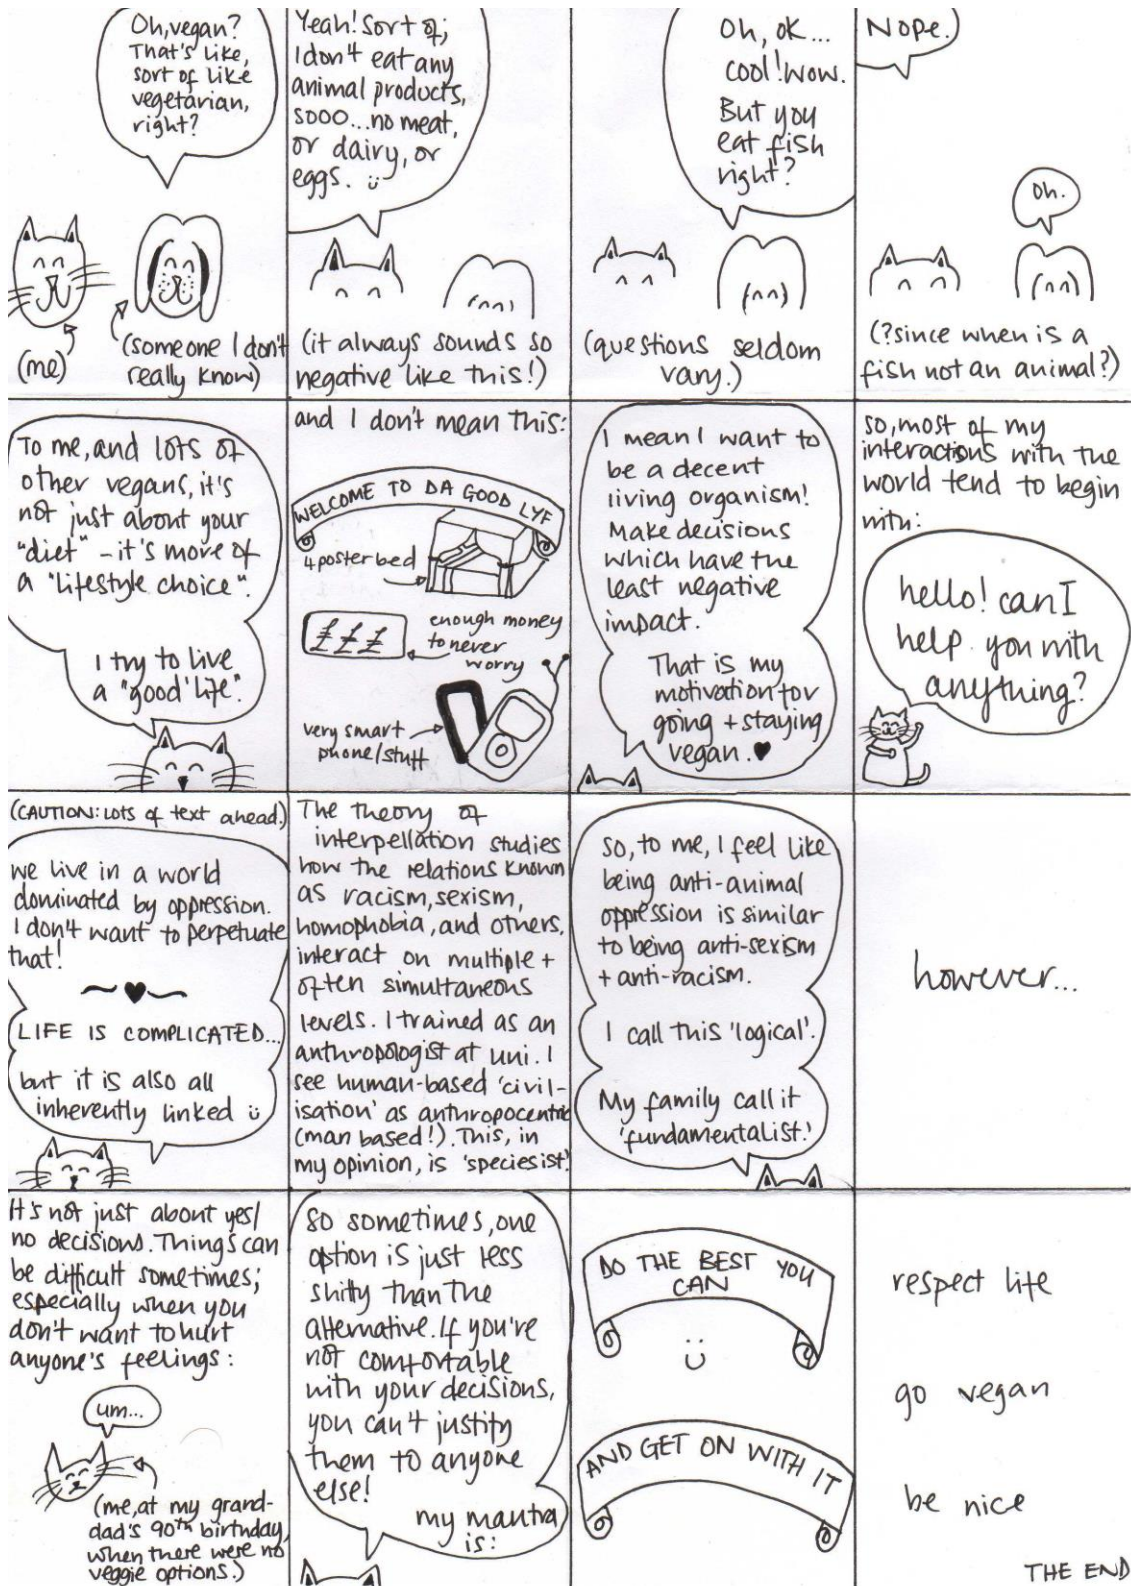 Oh, vegan?
That's like,
sort of like
vegetarian,
right?
(me)
(someone I don't
really know)
Yeah! Sort of;
I don't eat any
animal products,
sooo...no meat,
or dairy, or
eggs. :)
(it always sounds so
negative like this!)
Oh, ok...
cool! Wow.
But you
eat fish
right?
(questions seldom
vary.)
Nope.
oh.
(?since when is a
fish not an animal?)
To me, and lots of
other vegans, it's
not just about your
"diet" - it's more of
a "lifestyle choice".
I try to live
a "good' life".
and I don't mean this:
WELCOME TO DA GOOD LYF
4 poster bed
£££
enough money
to never
worry
very smart
phone/stuff
I mean I want to
be a decent
living organism!
Make decisions
which have the
least negative
impact.
That is my
motivation for
going + staying
vegan. ♥
so, most of my
interactions with the
world tend to begin
with:
hello! can I
help you with
anything?
(CAUTION: LOTS of text ahead.)
we live in a world
dominated by oppression.
I don't want to perpetuate
that!
~♥~
LIFE IS COMPLICATED...
but it is also all
inherently linked :)
The theory of
interpellation studies
how the relations known
as racism, sexism,
homophobia, and others,
interact on multiple +
often simultaneous
levels. I trained as an
anthropologist at uni. I
see human-based 'civil-
isation' as anthropocentric
(man based!). This, in
my opinion, is 'speciesist'.
so, to me, I feel like
being anti-animal
oppression is similar
to being anti-sexism
+ anti-racism.
I call this 'logical'.
My family call it
'fundamentalist.'
however...
It's not just about yes/
no decisions. Things can
be difficult sometimes;
especially when you
don't want to hurt
anyone's feelings:
um...
(me, at my grand-
dad's 90th birthday,
when there were no
veggie options.)
so sometimes, one
option is just less
shitty than the
alternative. If you're
not comfortable
with your decisions,
you can't justify
them to anyone
else!
my mantra
is:
DO THE BEST YOU
CAN
:)
AND GET ON WITH IT
respect life
go vegan
be nice
THE END